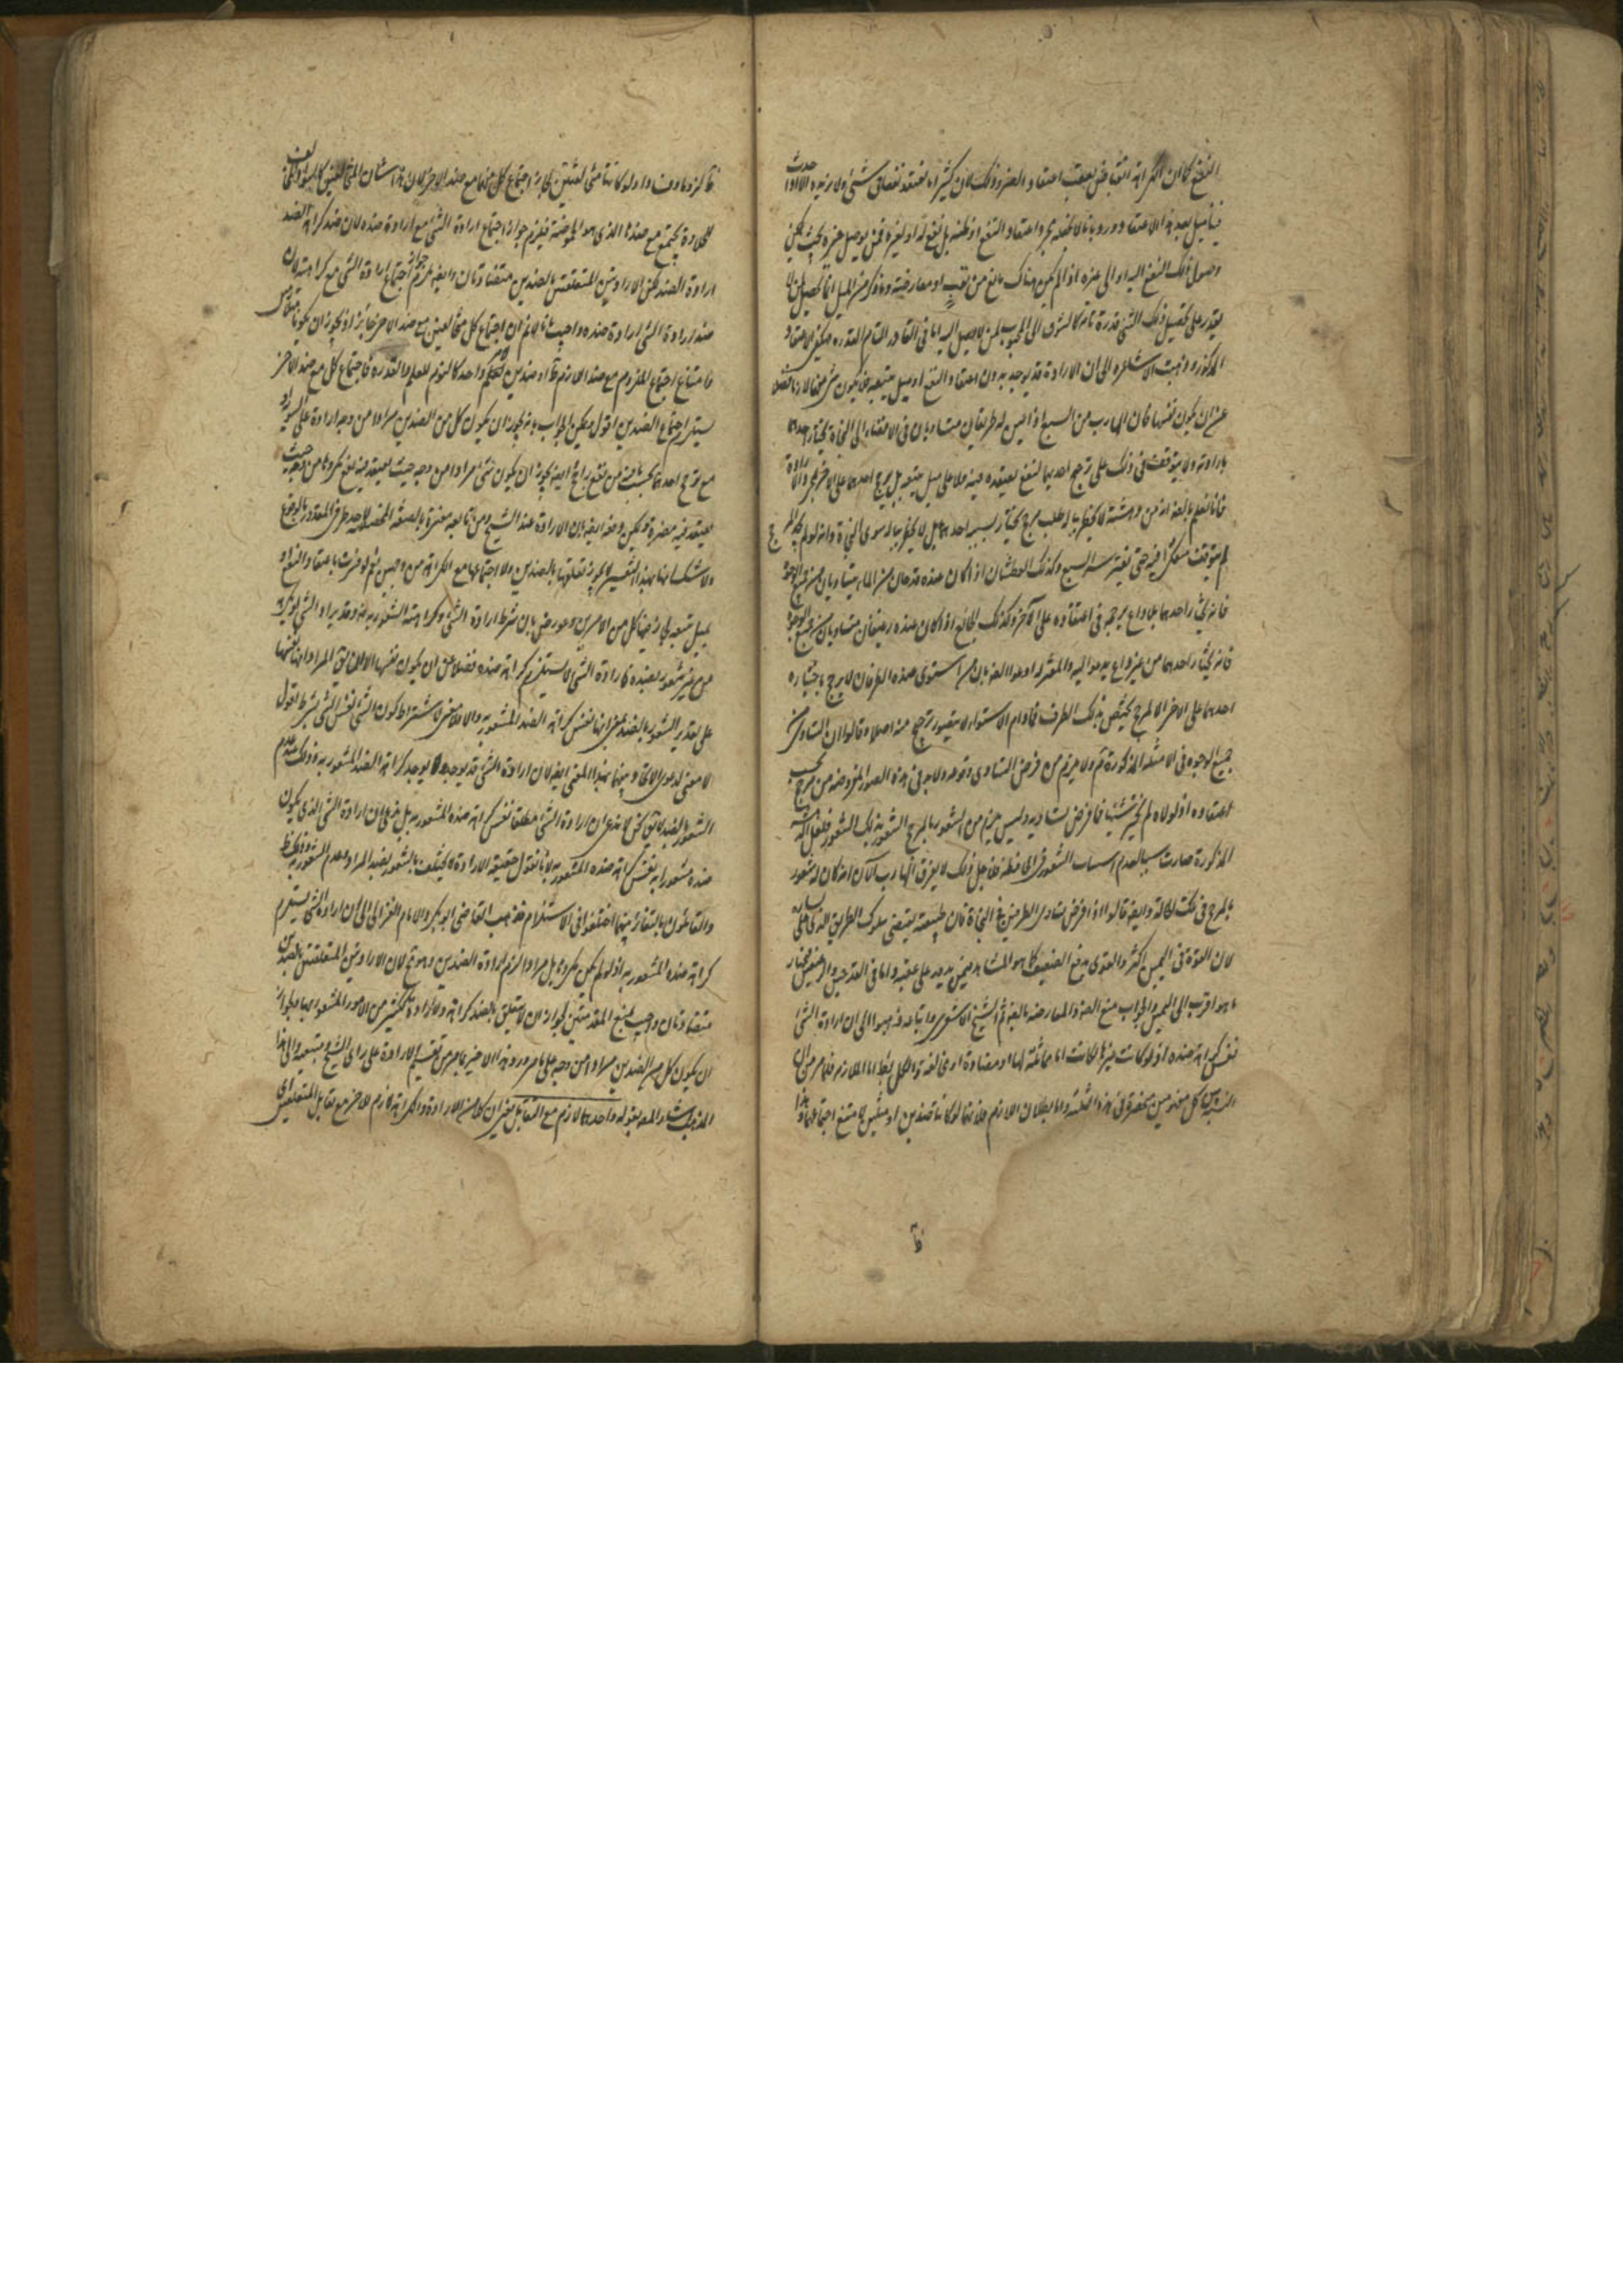 النفع كما ان الكراهة انقباض يعقب اعتقاد الضرر وذلك لان كثيرا ما نعتقد نفعا في شئ ولا نريده الا اذا حدث
فينا ميل بعد هذا الاعتقاد ورد بانا لا نجعله مجرد اعتقاد النفع او ظنه بل نفع له او لغيره ممن يوثر خيره بحيث يمكن
وصول ذلك النفع اليه او الى غيره اذ لم يكن هناك مانع من تعب او معارضة وما ذكر من الميل انما يحصل لمن لا
يقدر على تحصيل ذلك الشئ قدرة تامة كالشوق الى المحبوب لمن لا يصل اليه اما في القادر التام القدرة فيكفي الاعتقاد
المذكور وذهبت الاشاعرة الى ان الارادة قد يوجد بدون اعتقاد النفع او ميل يتبعه فلا يكون شئ منهما لازما فضلا
عن ان يكون نفسها فان الهارب من السبع اذا عن له طريقان متساويان في الافضاء الى النجاة يختار احدهما
بارادته ولا يتوقف في ذلك على ترجيح احدهما لنفع يعتقده فيه ولا على ميل يتبعه بل يرجح احدهما على الاخر بمجرد الارادة
فانا نعلم بالضرورة انه من دهشته لا يخطر بباله طلب مرجح يختار بسببه احدهما بل لا يخطر بباله سوى النجاة وانه لو لم يجد المرجح
لم يتوقف متفكرا فيه حتى يفترسه السبع وكذلك العطشان اذا كان عنده قدحان من الماء متساويان من جميع الوجوه
فانه يختار احدهما بلا داع يرجحه في اعتقاده على الآخر وكذلك الجائع اذا كان عنده رغيفان متساويان من جميع الوجوه
فانه يختار احدهما من غير داع يدعو اليه والمعتزلة ادعوا الضرورة بان من استوى عنده الطرفان لا يرجح باختياره
احدهما على الاخر الا لمرجح يختص بذلك الطرف فما دام الاستواء لا يتصور ترجيح منه اصلا وقالوا ان التساوي من
جميع الوجوه في الامثلة المذكورة ثم ولا يلزم من فرض التساوي وقوعه ولا بد في هذه الصور المفروضة من مرجح بحسب
اعتقاده اذ لولاه لم يختر شيئا مما فرض تساويه وليس يلزم من الشعور بالمرجح الشعور بذلك الشعور فلعل الدهشة
المذكورة صارت سببا لعدم استثبات الشعور في الحافظة فلاجل ذلك لا يعرف الهارب الآن انه كان له شعور
بالمرجح في تلك الحالة وايضا قالوا اذا فرض تساوي الطريقين في النجاة فان طبيعته يقتضي سلوك الطريق الذي على يساره
لان القوة في اليمين اكثر والقوي يدفع الضعيف كما هو المشاهد فيمن يدور على عقبه واما في القدحين والرغيفين فيختار
ما هو اقرب الى اليمين والجواب منع الضرورة والمعارضة بالضرورة ثم الشيخ الاشعري واتباعه ذهبوا الى ان ارادة الشئ
نفس كراهة ضده اذ لو كانت غيرها لكانت اما مماثلة لها او مضادة او مخالفة والكل باطل اما الملازمة فلما مر من ان
المتغايرين كل مفهومين منحصرة في هذه الثلثة واما بطلان اللازم فلانهما لو كانا ضدين او مثلين لامتنع اجتماعهما وهذا
ظ
ظاهر لزوما ودفعا ولو كانتا مختلفتين لجاز اجتماع كل منهما مع ضد الاخر لان هذا شان المتخالفين كالسواد المخالف
للحلاوة يجتمع مع ضدها الذي هو الحموضة فيلزم جواز اجتماع ارادة الشئ مع ارادة ضده لان ضد كراهة الضد
ارادة الضد لكن الارادتين المتعلقتين بالضدين متضادتان وايضا يلزم جواز اجتماع ارادة الشئ مع كراهته لان
ضد ارادة الشئ ارادة ضده واجيب بانا لا نم ان اجتماع كل متخالفين مع ضد الاخر جائز اذ يجوز ان يكونا متلازمين
فامتناع اجتماع الملزوم مع ضد اللازم ظ او ضدين لحكم واحد كالنوم للعلم والقدرة فاجتماع كل مع ضد الاخر
يستلزم اجتماع الضدين اقول يمكن الجواب بانه يجوز ان يكون كل من الضدين مرادا من وجه ارادة على السواء او
مع ترجح احدهما بحسب ما فيه من نفع راجح ايضا يجوز ان يكون شئ مرادا من وجه حيث يعتقد فيه نفع مكروها من وجه حيث
يعتقد فيه مضرة ويمكن دفعه ايضا بان الارادة عند الشيخ ومن تابعه مفسرة بالصفة المخصصة لاحد طرفي المقدور بالوقوع
ولا شك انها بهذا التفسير لا يجوز تعلقها بالضدين ولا اجتماعها مع الكراهة من وجهين نعم لو فسرت باعتقاد النفع او
بميل يتبعه لجاز فيها كل من الامرين وعورض بان شرط ارادة الشئ وكراهته الشعور به وقد يراد الشئ او يكره
من غير شعور بضده فارادة الشئ لا يستلزم كراهة ضده فضلا عن ان يكون نفسها الا ان يق المراد انها نفسها
على تقدير الشعور بالضد بمعنى انها نفس كراهة الضد المشعور به والا فلا معنى لاشتراط كون الشئ نفس الشئ بشرط اقول
لا معنى لدعوى الاتحاد بينهما بهذا المعنى ايضا لان ارادة الشئ قد يوجد ولا يوجد كراهة الضد المشعور به وذلك عند عدم
الشعور بالضد لا يق نحن لا ندعي ان ارادة الشئ مطلقا نفس كراهة ضده المشعور به بل ندعي ان ارادة الشئ الذي يكون
ضده مشعورا به نفس كراهة ضده المشعور به لانا نقول حقيقة الارادة لا يختلف بالشعور بضد المراد وعدم الشعور به وذلك ظ
والقائلون بالتغاير بينهما اختلفوا في الاستلزام فذهب القاضي ابو بكر والامام الغزالي الى ان ارادة الشئ يستلزم
كراهة ضده المشعور به اذ لو لم يكن مكروها بل مرادا لزم ارادة الضدين وهو مح لان الارادتين المتعلقتين بالضدين
متضادتان واجيب بمنع المقدمتين لجواز ان لا يتعلق بالضد كراهة ولا ارادة ككثير من الامور المشعور بها ولجواز
ان يكون كل من الضدين مرادا من وجه على ما مر ورد هذا الاخير بما مر من تفسير الارادة على راي الشيخ ومتبعيه والى هذا
المذهب اشار المصـ بقوله واحدهما لازم مع التقابل يعني ان كلا من الارادة والكراهة لازم للاخر مع تقابل المتعلقين اي